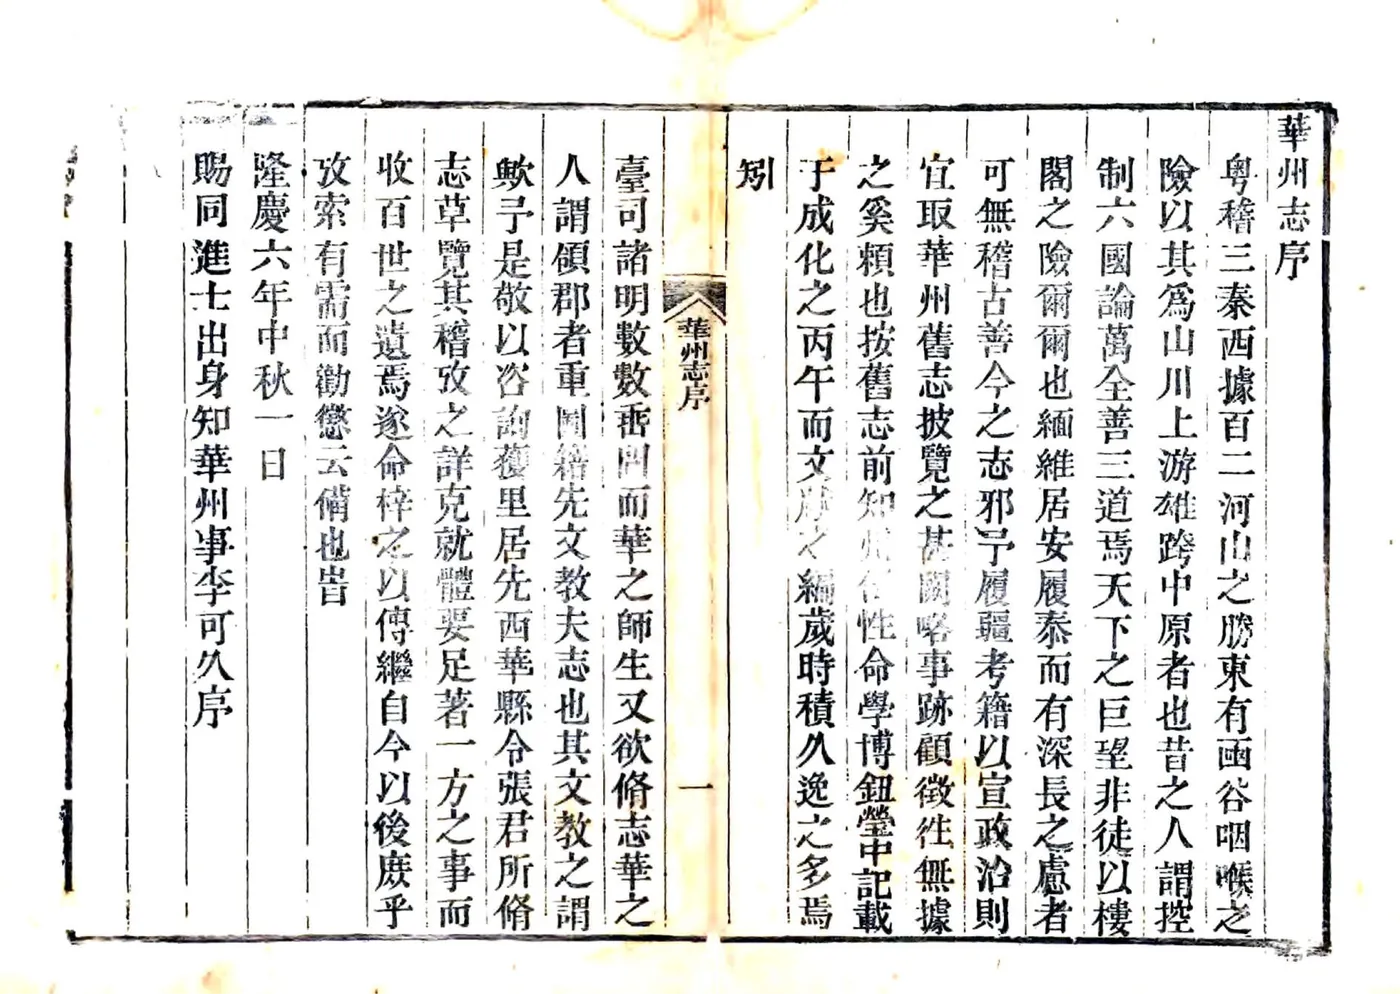 華州志序
粵稽三秦西據百二河山之勝東有函谷咽喉之
險以其爲山川上游雄跨中原者也昔之人謂控
制六國論萬全善三道焉天下之巨望非徒以樓
閣之險爾爾也緬維居安履泰而有深長之慮者
可無稽古善今之志邪予履疆考籍以宣政治則
宜取華州舊志披覽之甚闕略事跡顧徵徃無據
之奚賴也按舊志前知州 性命學博鈕瑩中記載
于成化之丙午而文 之編歲時積久逸之多焉
矧
華州志序
一
臺司諸明數數垂問而華之師生又欲脩志華之
人謂領郡者重圖籍先文教夫志也其文教之謂
歟予是敬以咨詢獲里居先西華縣令張君所脩
志草覽其稽攷之詳克就體要足著一方之事而
收百世之遺焉遂命梓之以傳繼自今以後庶乎
攷索有需而勸懲云備也旹
隆慶六年中秋一日
賜同進士出身知華州事李可久序